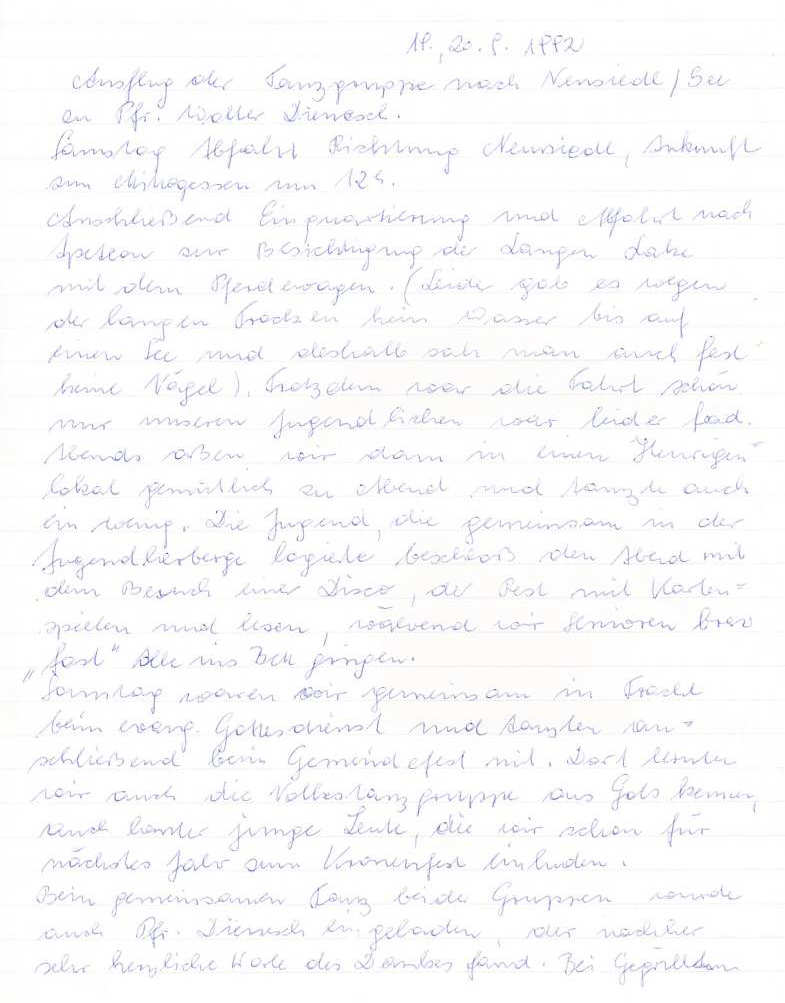 19., 20. 9. 1992
Ausflug der Tanzgruppe nach Neusiedl/See
zu Pfr. Walter Dienesch.
Samstag Abfahrt Richtung Neusiedl, Ankunft
zum Mittagessen um 12h.
Anschließend Einquartierung und Abfahrt nach
Apetlon zur Besichtigung der Langen Lake
mit dem Pferdewagen. (Leider gab es wegen
der langen Trockzen kein Wasser bis auf
einen See und deshalb sah man auch fast
keine Vögel). Trotzdem war die Fahrt schön
nur unseren Jugendlichen war leider fad.
Abends aßen wir dann in einen "Heurigen"
lokal gemütlich zu Abend und tanzte auch
ein wenig. Die Jugend, die gemeinsam in der
Jugendherberge logierte beschloß den Abend mit
dem Besuch einer Disco, der Rest mit Karten=
spielen und lesen, während wir Senioren brav
"fast" Alle ins Bett gingen.
Sonntag waren wir gemeinsam in Tracht
beim evang. Gottesdienst und tanzten an=
schließend beim Gemeindefest mit. Dort lernten
wir auch die Volkstanzgruppe aus Gols kennen,
auch lauter junge Leute, die wir schon für
nächstes Jahr zum Kronenfest einluden.
Beim gemeinsamen Tanz beider Gruppen wurde
auch Pfr. Dienesch eingeladen, der nachher
sehr herzliche Worte des Dankes fand. Bei Gegrilltem